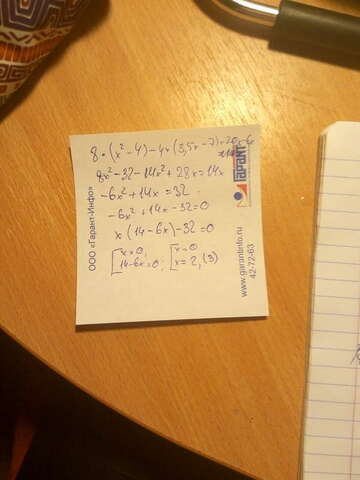 8·(x²-4)-4x(3,5x-7)=20-6x
8x²-32-14x²+28x=14x
-6x²+14x=32
-6x²+14x-32=0
x(14-6x)-32=0
[x=0, [x=0
14-6x=0; x=2,(3)
ООО «Гарант-Инфо»
ГАРАНТ
www.garantinfo.ru
42-72-63